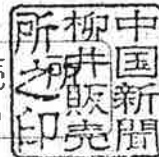 中国新聞
柳井販売
所之印